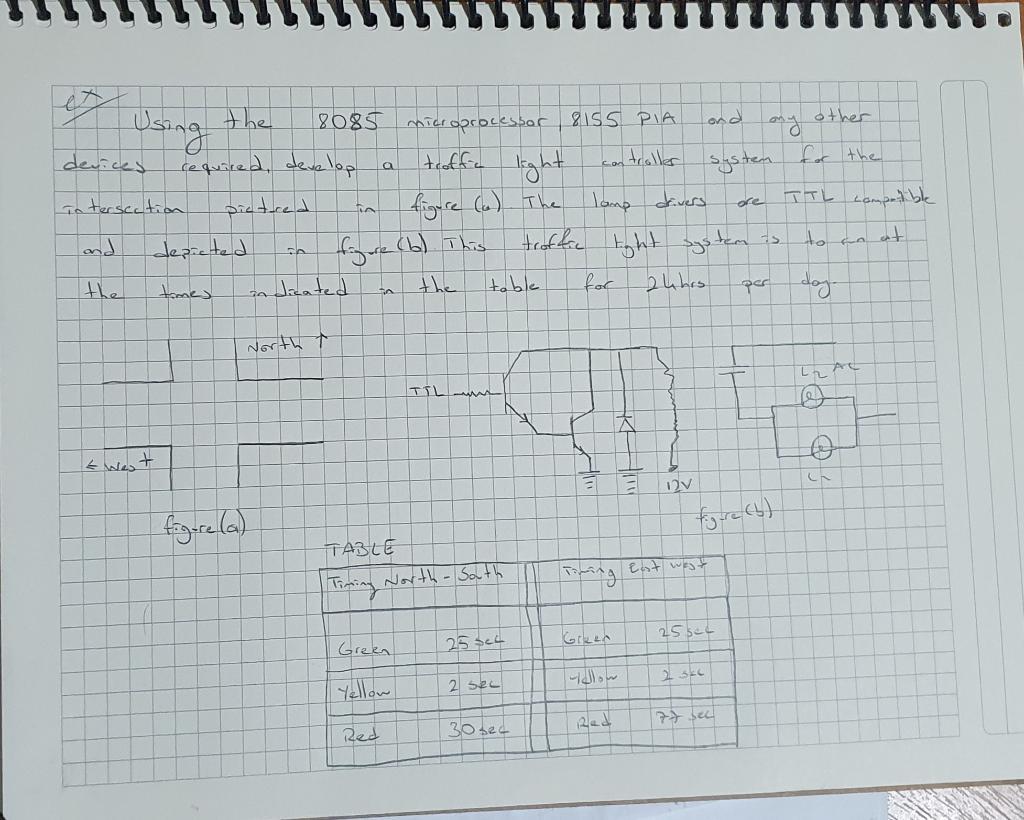 ex
Using the 8085 microprocessor, 8155 PIA and any other
devices required, develop a traffic light controller system for the
intersection pictured in figure (a) The lamp drivers are TTL compatible
and depicted in figure (b) This traffic light system is to run at
the times indicated in the table for 24hrs per day.
North ↑
TTL
L2 AC
← West
12V
figure (a)
figure (b)
TABLE
Timing North - South Timing East West
Green 25 sec Green 25 sec
Yellow 2 sec Yellow 2 sec
Red 30 sec Red 77 sec